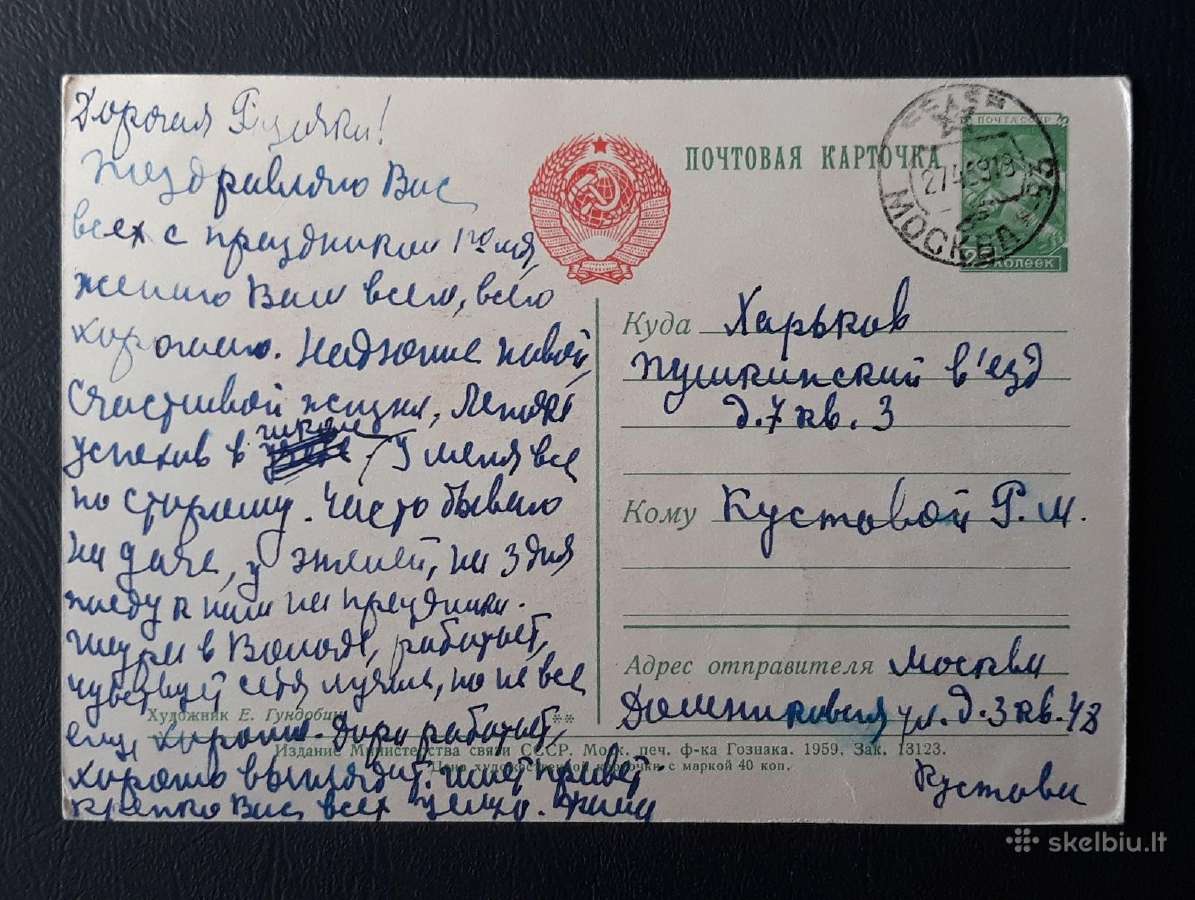 Дорогая Розочка!
Поздравляю Вас
всех с праздником 1го мая,
желаю Вам всего, всего
хорошего. Надюше новой,
счастливой жизни,
успехов в школе. У меня все
по старому. Часто бываю
на даче, у на 3 дня
поеду к ним на праздники.
в работает,
чувствует себя лучше, но не все
еще хорошо. Дора работает,
хорошо выглядит. шлет привет.
крепко Вас всех целую.
Художник Е. Гундобин
**
Издание Министерства связи СССР. Моск. печ. ф-ка Гознака. 1959. Зак. 13123.
Цена художественной карточки с маркой 40 коп.
ПОЧТОВАЯ КАРТОЧКА
ПОЧТА СССР
МОСКВА
2745918
25 КОПЕЕК
Куда Харьков
Пушкинский в'езд
д. 7 кв. 3
Кому Кустовой Р. М.
Адрес отправителя Москва
Домниковская ул. д. 3 кв. 48
Кустова
skelbiu.lt